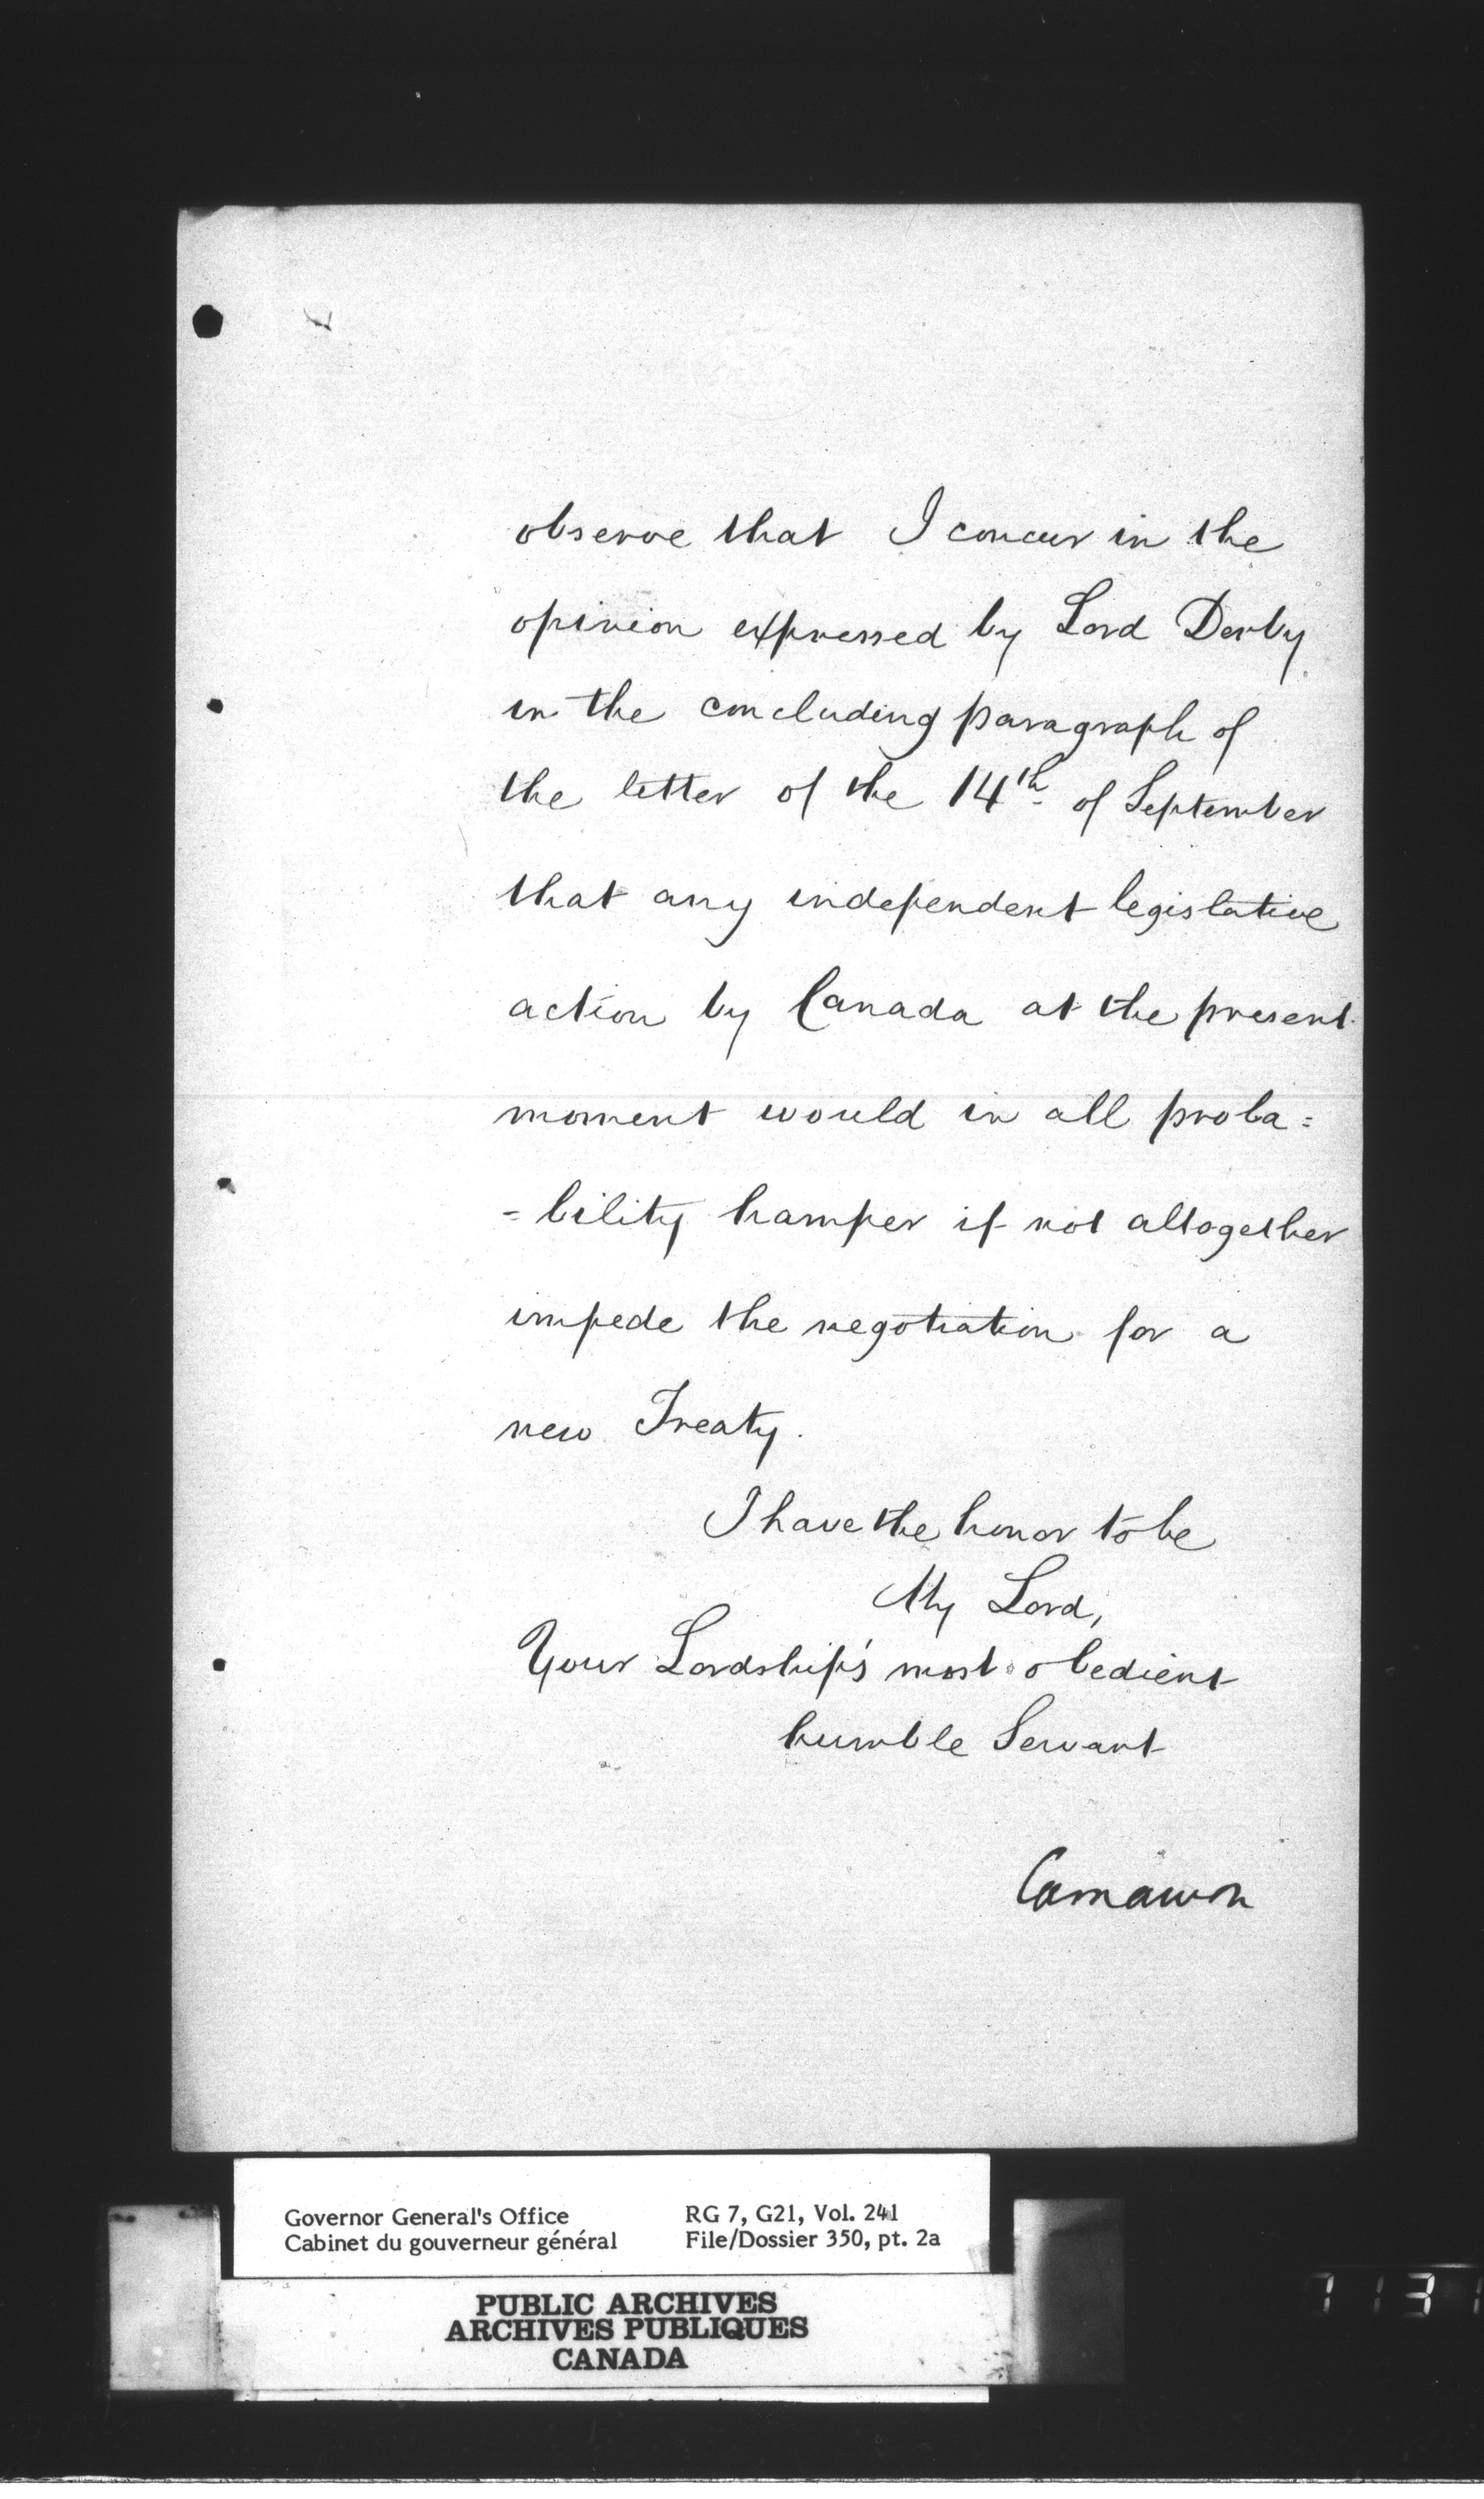 observe that I concur in the
opinion expressed by Lord Derby
in the concluding paragraph of
the letter of the 14th of September
that any independent legislative
action by Canada at the present
moment would in all proba=
=bility hamper if not altogether
impede the negotiation for a
new Treaty.
I have the honor to be
My Lord,
Your Lordship's most obedient
humble Servant
Carnarvon
Governor General's Office
Cabinet du gouverneur général
RG 7, G21, Vol. 241
File/Dossier 350, pt. 2a
PUBLIC ARCHIVES
ARCHIVES PUBLIQUES
CANADA
1131